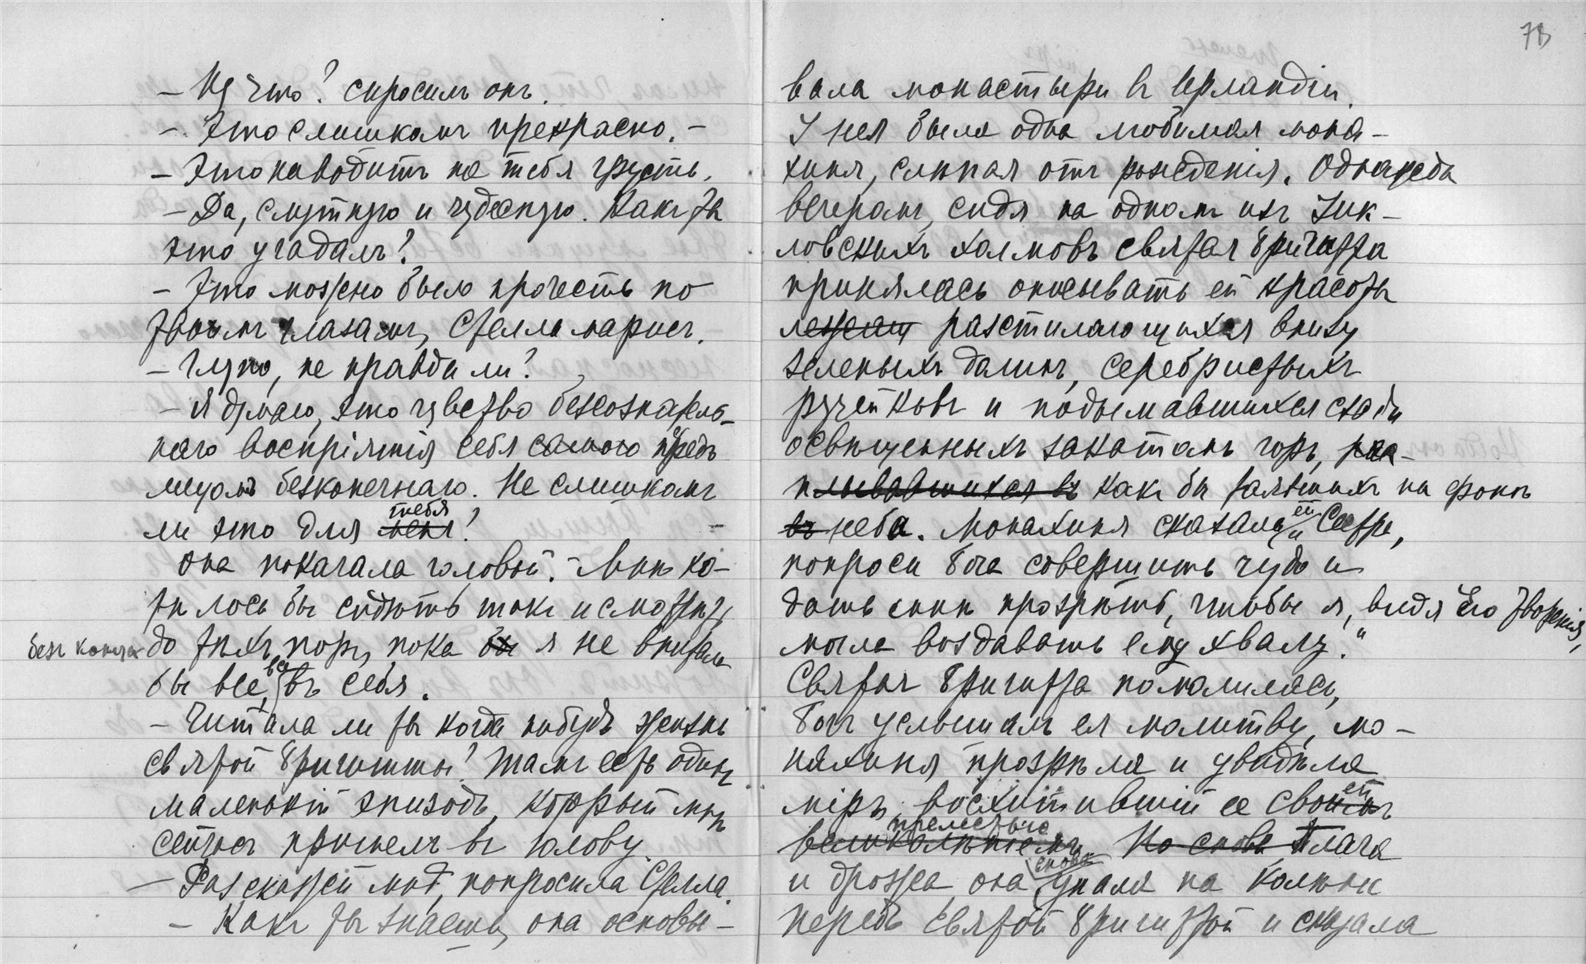 – Ну что? спросилъ онъ.
– Это слишкомъ прекрасно. –
– Это наводитъ на тебя грусть.
– Да, смутную и чудесную. Какъ ты
это угадалъ?
– Это можно было прочесть по
твоимъ глазамъ, Стелла марисъ.
– Глупо, не правда ли?
– Я думаю, это чувство безсознатель-
наго воспріятія себя самого предъ
лицомъ безконечнаго. Не слишкомъ
тебя
ли это для меня?
Она покачала головой. – Мнѣ хо-
тѣлось бы сидѣть такъ и смотрѣть
безъ конца
до тѣхъ поръ, пока бы я не впитала
бы все въ себя.
– Читала ли ты когда нибудь жизнь
святой Бригитты? Тамъ есть одинъ
маленькій эпизодъ, который мнѣ
сейчасъ пришелъ въ голову.
– Разскажи мнѣ, попросила Стелла.
– Какъ ты знаешь, она основы-
73
вала монастыри въ Ирландіи.
У нея была одна любимая мона-
хиня, слѣпая отъ рожденія. Однажды
вечеромъ, сидя на одномъ изъ Уик-
ловскихъ холмовъ святая Бригитта
принялась описывать ей красоты
лежащ разстилающихся внизу
зеленыхъ долинъ, серебристыхъ
ручейковъ и подымавшихся сзади
освѣщенныхъ закатомъ горъ, рас-
плывавшихся въ какъ бы таявшихъ на фонѣ
въ неба. Монахиня сказала ей: „Сестра,
попроси Бога совершить чудо и
дать мнѣ прозрѣть, чтобы я, видя Его творенія,
могла воздавать ему хвалу.“
Святая Бригитта помолилась,
Богъ услышалъ ея молитву, мо-
нахиня прозрѣла и увидѣла
ей
міръ, восхитившій ее своимъ
прелестью
великолѣпіемъ. Но снова Плача
снова
и дрожа она упала на колѣни
передъ святой Бригиттой и сказала